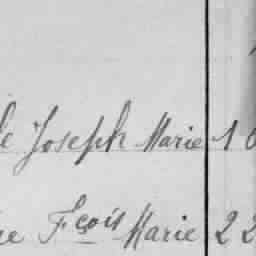 Joseph Marie 1
Fçois Marie 22